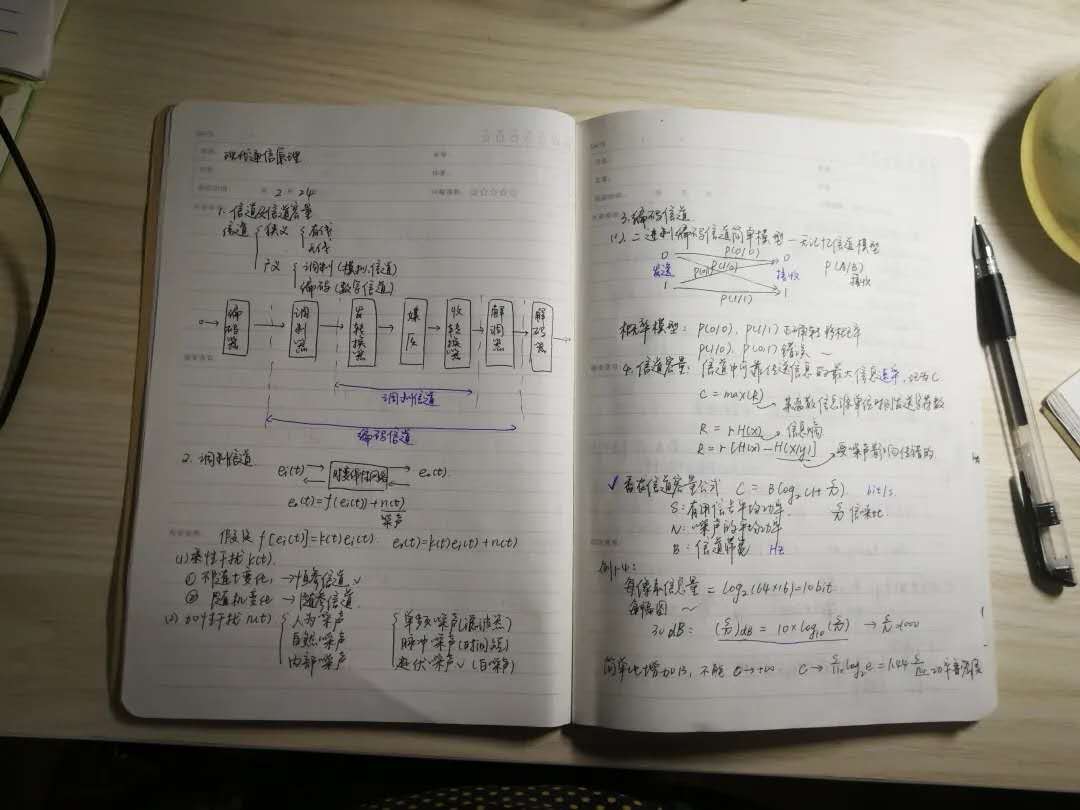 现代通信原理
2 24
1. 信道及信道容量
信道 狭义 有线
无线
广义 调制(模拟信道)
编码(数字信道)
编码器 调制器 发转换器 媒质 收转换器 解调器 解码器
调制信道
编码信道
2. 调制信道
ei(t) 时变线性网络 eo(t)
eo(t)=f(ei(t))+n(t)
噪声
假设 f[ei(t)]=k(t)ei(t). eo(t)=k(t)ei(t)+n(t)
(1) 乘性干扰 k(t).
① 不随t变化, →恒参信道.✓
② 随机变化 →随参信道.
(2) 加性干扰 n(t) 人为噪声
自然噪声
内部噪声
单频噪声(滤波器)
脉冲噪声(时间短)
起伏噪声✓(白噪声)
3. 编码信道
(1). 二进制编码信道简单模型—无记忆信道模型
0 P(0/0) 0
发送 P(0/1) P(1/0) 接收 P(A/B)
接收
1 P(1/1) 1
概率模型: P(0/0)、P(1/1) 正确转移概率
P(1/0)、P(0/1) 错误 ~
4. 信道容量: 信道中可靠传送信息的最大信息速率, 记为C
C = max(R)
某离散信息源单位时间发送符号数
R = rH(x) → 信息熵
R = r[H(x) - H(x/y)] → 受噪声影响
✓ 香农信道容量公式 C = Blog₂(1+S/N) bit/s.
S: 有用信号平均功率. S/N 信噪比.
N: 噪声的平均功率
B: 信道带宽 Hz
例1-4:
每像素信息量 = log₂(64×16)=10bit
每幅图 ~
30dB: (S/N)dB = 10×log₁₀(S/N) → S/N=1000
简单地增加B, 不能 C→+∞ C→ S/n₀ log₂e = 1.44 S/n₀